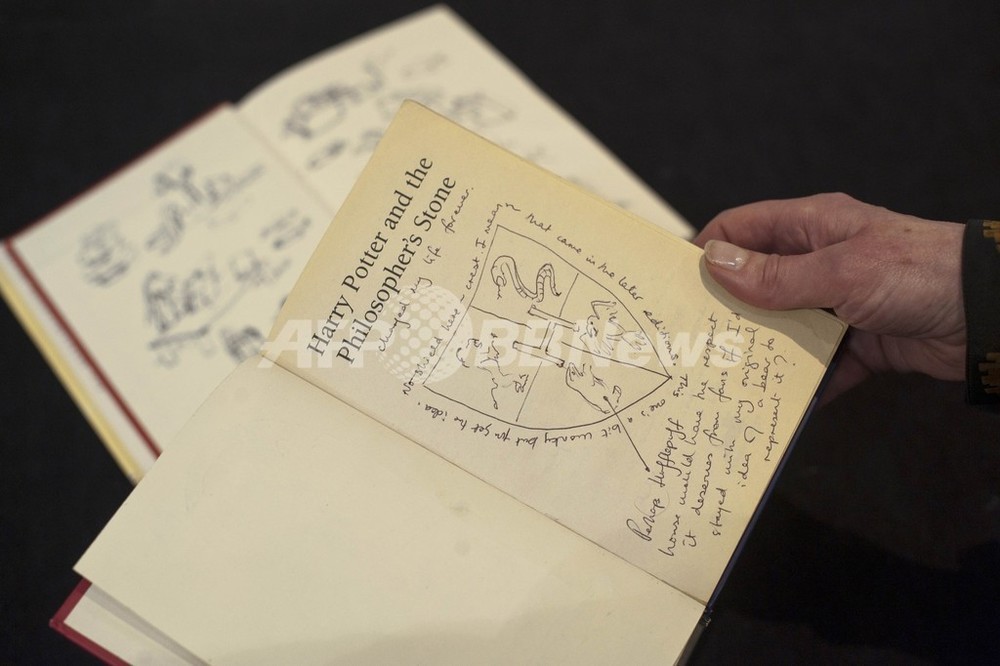 Harry Potter and the
Philosopher's Stone
changed my life forever.
No shield here - crest, I mean,
that came in the later editions. This one's a
bit wonky but you get the idea.
Perhaps Hufflepuff
house would have the respect
it deserves from fans if I'd
stayed with my original
idea of a bear to
represent it?
AFP BB News